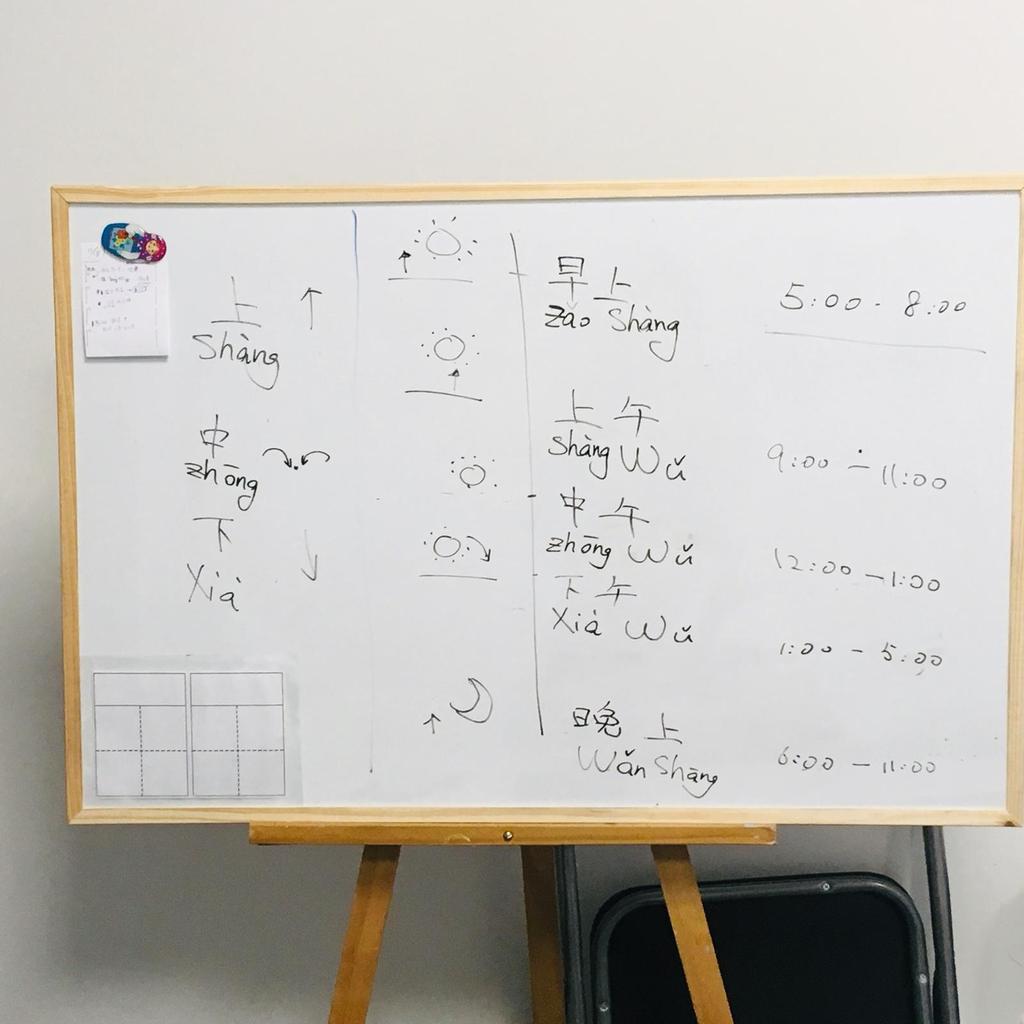 上
shàng
中
zhōng
下
Xià
早上
zǎo shàng
5:00 - 8:00
上午
shàng Wǔ
9:00 - 11:00
中午
zhōng Wǔ
12:00 - 1:00
下午
Xià Wǔ
1:00 - 5:00
晚上
Wǎn shāng
6:00 - 11:00